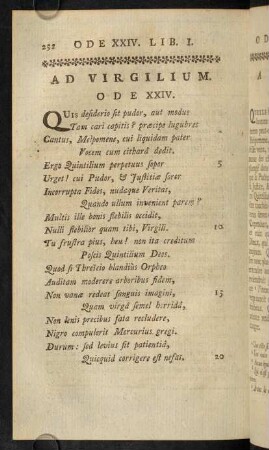 252 ODE XXIV. LIB. I.
AD VIRGILIUM.
ODE XXIV.
QUIS desiderio sit pudor, aut modus
Tam cari capitis? præcipe lugubres
Cantus, Melpomene, cui liquidam pater
Vocem cum citharâ dedit.
Ergo Quintilium perpetuus sopor 5
Urget! cui Pudor, & Justitiæ soror
Incorrupta Fides, nudaque Veritas,
Quando ullum invenient parem?
Multis ille bonis flebilis occidit,
Nulli flebilior quam tibi, Virgili. 10
Tu frustra pius, heu! non ita creditum
Poscis Quintilium Deos.
Quod si Threïcio blandiùs Orpheo
Auditam moderere arboribus fidem,
Non vanæ redeat sanguis imagini, 15
Quam virgâ semel horridâ,
Non lenis precibus fata recludere,
Nigro compulerit Mercurius gregi.
Durum: sed levius fit patientiâ,
Quicquid corrigere est nefas. 20